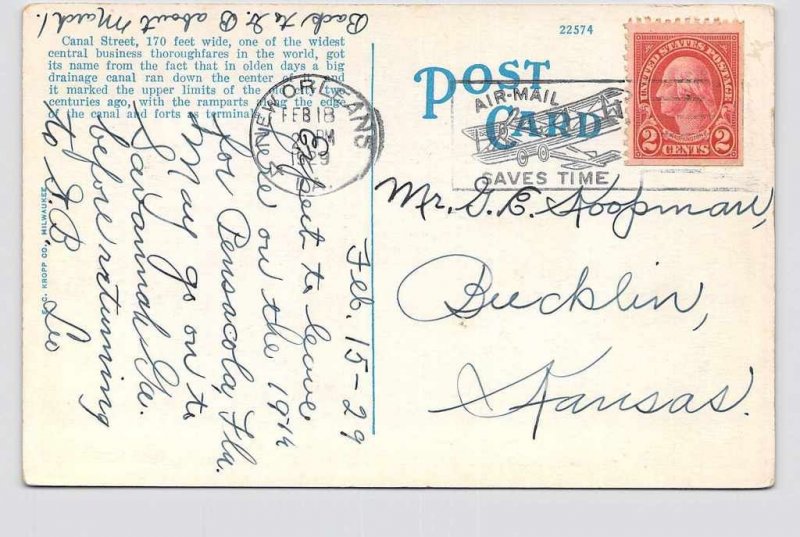 Back to G. B about March 1.
Canal Street, 170 feet wide, one of the widest
central business thoroughfares in the world, got
its name from the fact that in olden days a big
drainage canal ran down the center of it and
it marked the upper limits of the old city two
centuries ago, with the ramparts along the edge
of the canal and forts as terminals.
22574
POST
CARD
NEW ORLEANS
FEB 18
PM
1929
AIR-MAIL
SAVES TIME
UNITED STATES POSTAGE
2 CENTS 2
Feb. 15-29
Expect to leave
here on the 19th
for Pensacola, Fla.
May go on to
Savannah, Ga.
before returning
to G.B. Leo
Mr. G. E. Koopman,
Bucklin,
Kansas.
E. C. KROPP CO., MILWAUKEE